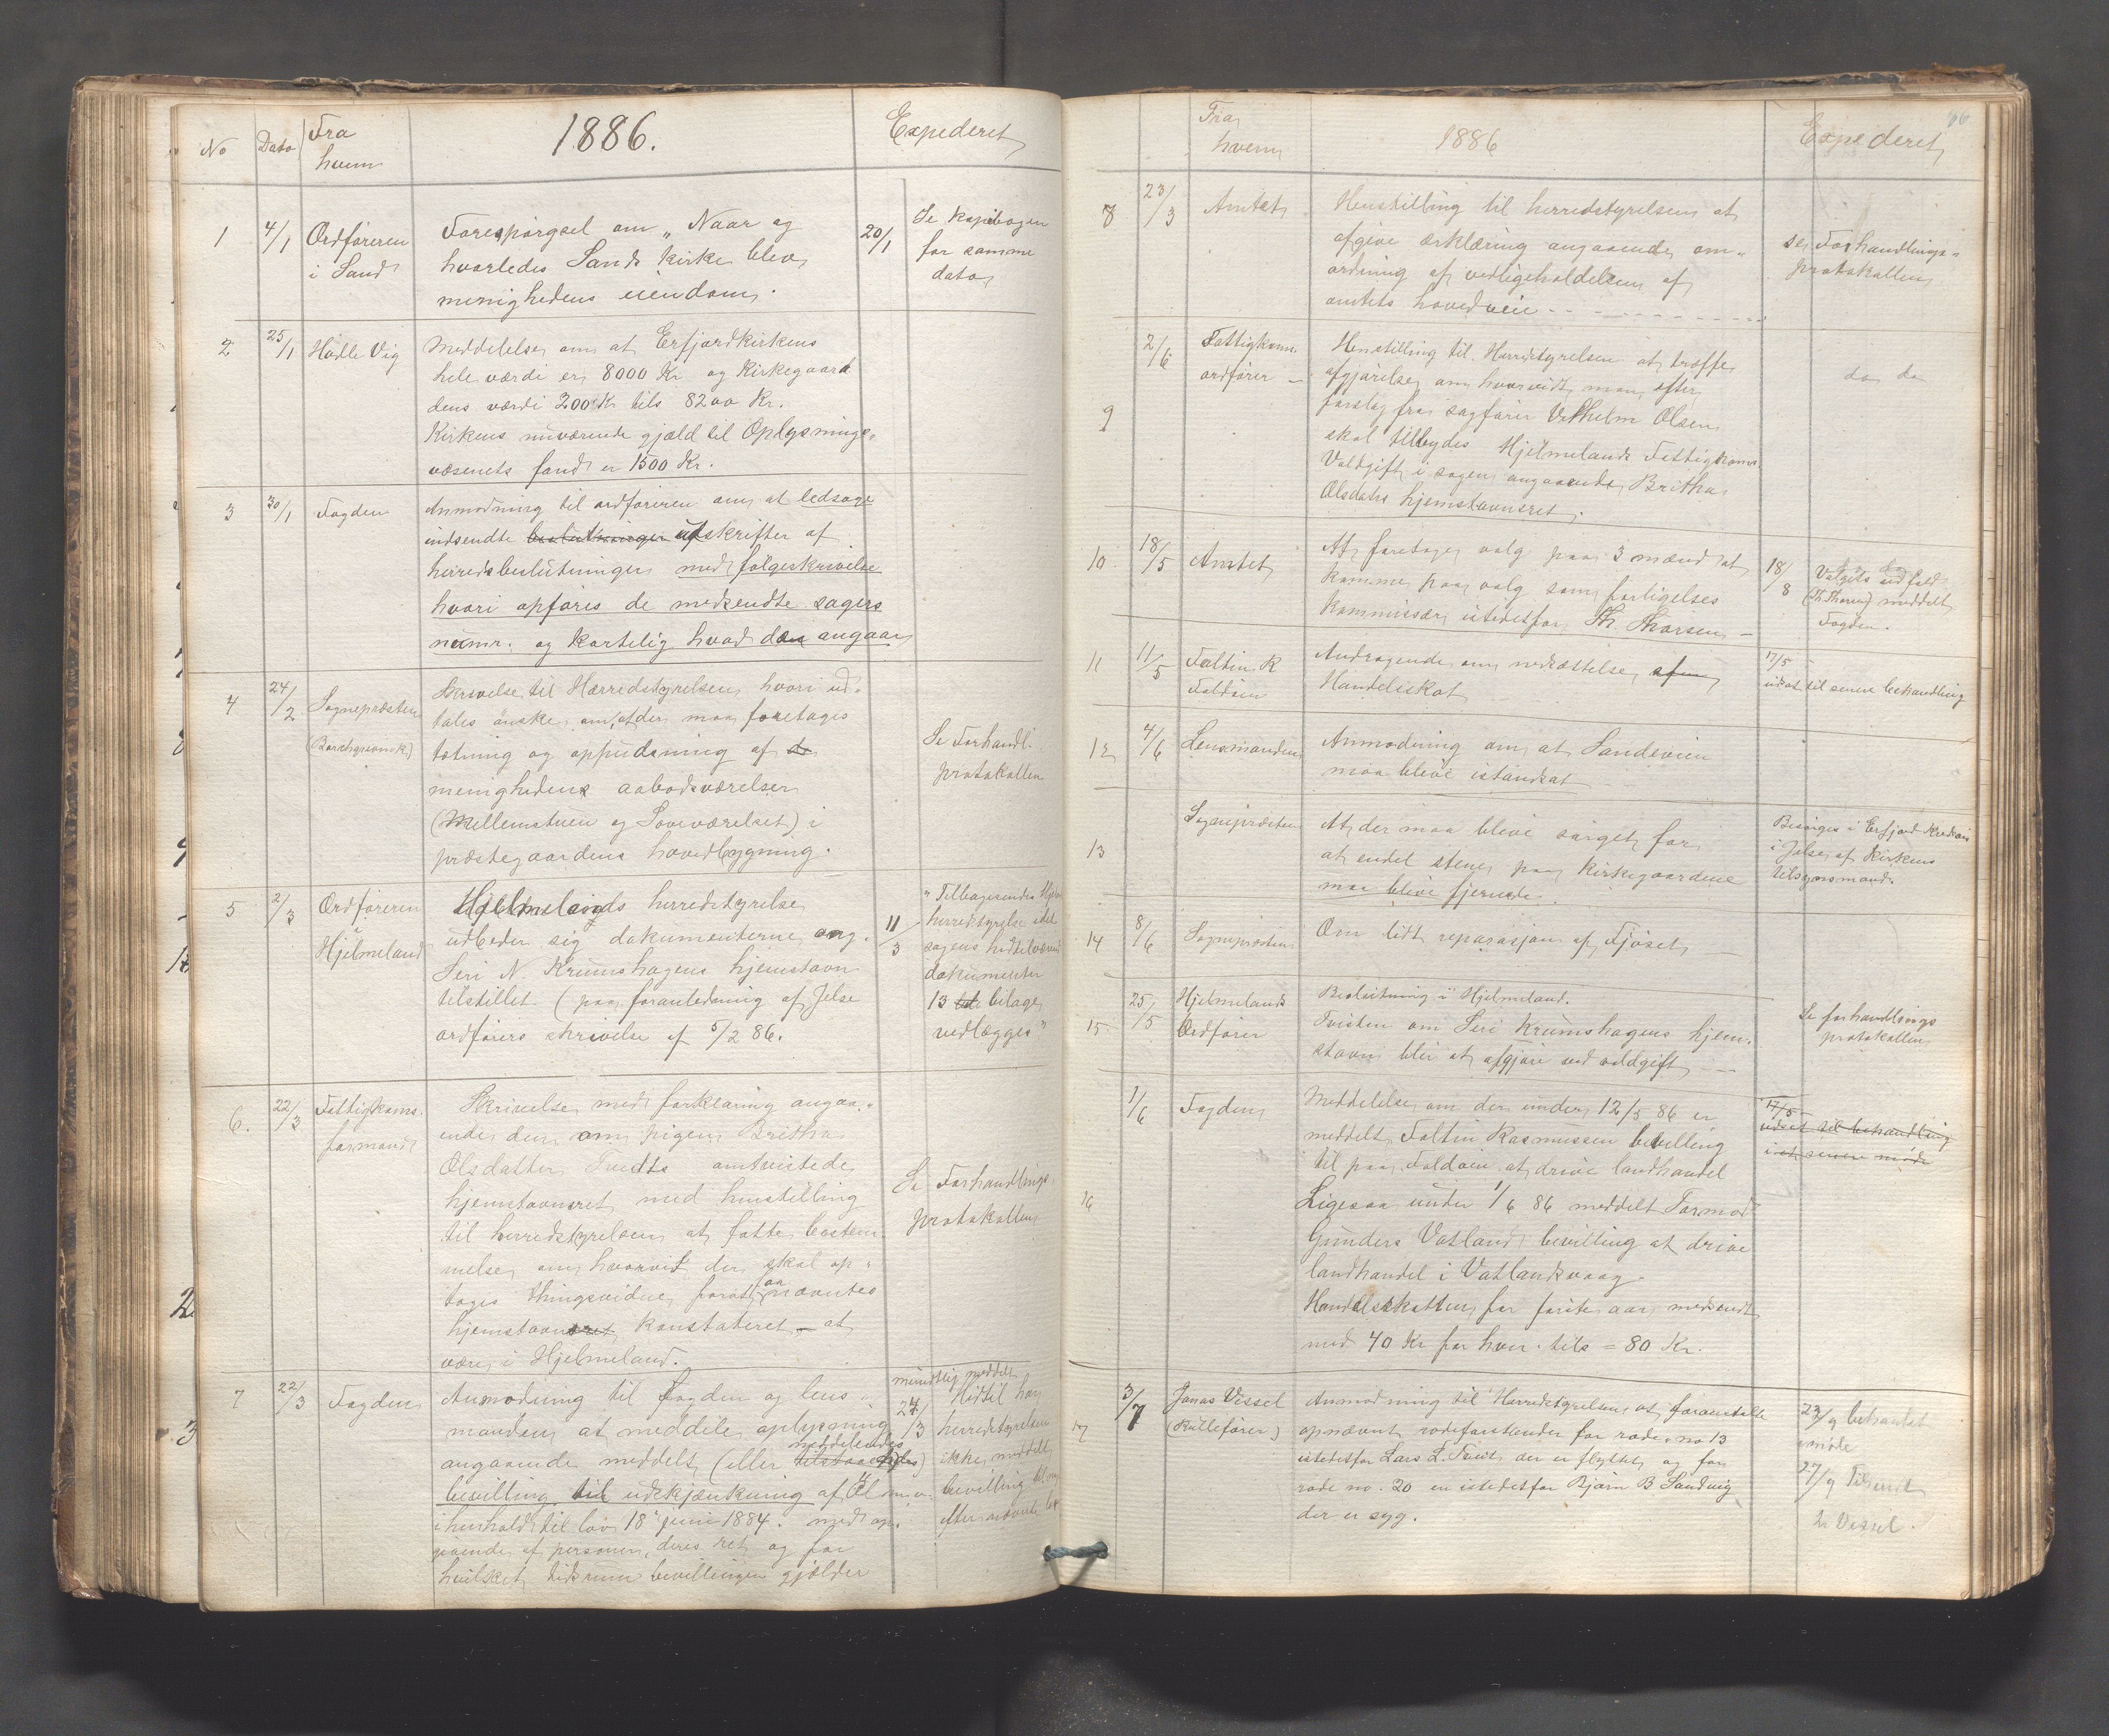 No Dato Fra hvem 1886. Expederet
1 4/1 Ordføreren i Sand
Forespørgsel om „Naar og
hvorledes Sands kirke blev
menighedens eiendom.
20/1 Se kopibogen
for samme
dato
2 25/1 Halle Vig
Meddelelse om at Erfjordkirkens
hele værdi er 8000 Kr og Kirkegaard
dens værdi 200 Kr tils 8200 Kr.
Kirkens nuværende gjæld til Oplysnings-
væsenets fond er 1500 Kr.
3 30/1 Fogden
Anmodning til ordføreren om at ledsage
indsendte beslutninger udskrifter af
herredsbeslutninger med følgeskrivelse
hvori opføres de medsendte sagers
numr. og kortelig hvad den angaar
4 24/2 Sognepræsten
(Borchgrevink)
Skrivelse til Herredstyrelsen hvori ud-
tales ønske om, at der maa foretages
tætning og oppudsning af de
menighedens aabodsværelser
(Mellemstuen og Soveværelset) i
præstegaardens hovedbygning.
Se Forhandl.
protokollen
5 2/3 Ordføreren
i
Hjelmeland
Hjelmelands herredstyrelse
udbeder sig dokumenterne ang.
Seri N. Krumshagens hjemstavn
tilstillet (paa foranledning af Jelse
ordførers skrivelse af 5/2 86.
11/3 "Tilbagesendes
herredstyrelse idet
sagens hidtilværende
dokumenter
13 bilage
vedlægges"
6. 22/3 Fattigkoms.
formand
Skrivelse med forklaring angaa-
ende den om pigen Britha
Olsdatter Tvedts omtvistede
hjemstavnsret med henstilling
til herredstyrelsen at fatte bestem
melse om hvorvit der skal op-
tages thingsvidne forat faa nævntes
hjemstavnsret konstateret at
være i Hjelmeland.
Se Forhandlings-
protokollen
7 22/3 Fogden
Anmodning til fogden og lens
manden at meddele oplysning
angaaende meddelt (eller meddelendes)
bevilling til udskjænkning af Øl
i henhold til lov 18 juni 1884. med op-
givende af personen, deres ret og for
hvilket tidsrum bevillingen gjælder
mundtlig meddelt
24/3 Hidtil har
herredstyrelsen
ikke meddelt
bevilling
efter nævnte lov
Fra hvem 1886 Expederet 66
8 23/3 Amtet
Henstilling til herredstyrelsen at
afgive erklæring angaaende om-
ordning af vedligeholdelsen af
amtets hovedveie
se Forhandlings-
protokollen
9 2/6 Fattigkom.
ordfører
Henstilling til Herredstyrelsen at træffe
afgjørelse om hvorvidt man efter
forslag fra sagfører Vilhelm Olsen
skal tilbydes Hjelmelands Fattigkoms.
Voldgift i sagen angaaende Britha
Olsdatrs hjemstavnsret.
do do
10 18/5 Amtet
At foretage valg paa 3 mænd at
komme paa valg som forligelses
kommissær istedetfor Th. Thorsen
18/8 Valgets udfald
(Th. Thorsen) meddelt
Fogden.
11 11/5 Faltin R
Foldøen
Andragende om nedsættelse af
Handelsskat
17/5
udsat til senere behandling
12 4/6 Lensmanden
Anmodning om at Sandeveien
maa blive istandsat
13 Sognepræsten
At der maa blive sørget for
at endel stene paa kirkegaardene
maa blive fjernede.
Besørges i Erfjord
i Jelse af Kirkens
tilsynsmænd.
14 8/6 Sognepræsten
Om lidt reparasjon af fjøset
15 25/5 Hjelmelands
Ordfører
Beslutning i Hjelmeland.
Tvisten om Seri Krumshagens hjem-
stavn blir at afgjøre ved voldgift
Se forhandlings
protokollen
16 1/6 Fogden
Meddelelse om den under 12/5 86 er
meddelt Faltin Rasmussen bevilling
til paa Foldøen at drive landhandel
Ligesaa under 1/6 86 meddelt Tormod
Gunders Vatland bevilling at drive
landhandel i Vatlandsvaag.
Handelsskatten for første aar medsendt
med 40 Kr for hver. tils = 80 Kr.
17/5
udsat til behandling
i et senere møde
17 3/7 Jonas Vissel
(Rullefører)
Anmodning til Herredstyrelsen at foranstalte
opnævnt rodeforstander for rode no 13
istedetfor Lars L. Tveit der er flyttet og for
rode no. 20 en istedetfor Bjørn B Sandvig
der er syg.
23/9 behandlet
i møde
27/9 Tilsendt
hr Vissel.